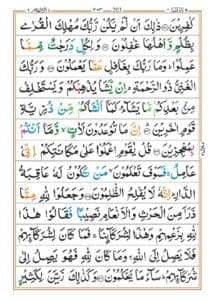 كٰفِرِيْنَ ذٰلِكَ اَنْ لَّمْ يَكُنْ رَّبُّكَ مُهْلِكَ الْقُرٰى
بِظُلْمٍ وَّاَهْلُهَا غٰفِلُوْنَ وَلِكُلٍّ دَرَجٰتٌ مِّمَّا
عَمِلُوْا وَمَا رَبُّكَ بِغَافِلٍ عَمَّا يَعْمَلُوْنَ وَرَبُّكَ
الْغَنِيُّ ذُو الرَّحْمَةِ اِنْ يَّشَاْ يُذْهِبْكُمْ وَيَسْتَخْلِفْ
مِنْۢ بَعْدِكُمْ مَّا يَشَآءُ كَمَاۤ اَنْشَاَكُمْ مِّنْ ذُرِّيَّةِ
قَوْمٍ اٰخَرِيْنَ اِنَّ مَا تُوْعَدُوْنَ لَاٰتٍ وَّمَاۤ اَنْتُمْ
بِمُعْجِزِيْنَ قُلْ يٰقَوْمِ اعْمَلُوْا عَلٰى مَكَانَتِكُمْ اِنِّيْ
عَامِلٌ فَسَوْفَ تَعْلَمُوْنَ مَنْ تَكُوْنُ لَهٗ عَاقِبَةُ
الدَّارِ اِنَّهٗ لَا يُفْلِحُ الظّٰلِمُوْنَ وَجَعَلُوْا لِلّٰهِ مِمَّا
ذَرَاَ مِنَ الْحَرْثِ وَالْاَنْعَامِ نَصِيْبًا فَقَالُوْا هٰذَا
لِلّٰهِ بِزَعْمِهِمْ وَهٰذَا لِشُرَكَآئِنَا فَمَا كَانَ لِشُرَكَآئِهِمْ
فَلَا يَصِلُ اِلَى اللّٰهِ وَمَا كَانَ لِلّٰهِ فَهُوَ يَصِلُ اِلٰى
شُرَكَآئِهِمْ سَآءَ مَا يَحْكُمُوْنَ وَكَذٰلِكَ زَيَّنَ لِكَثِيْرٍ